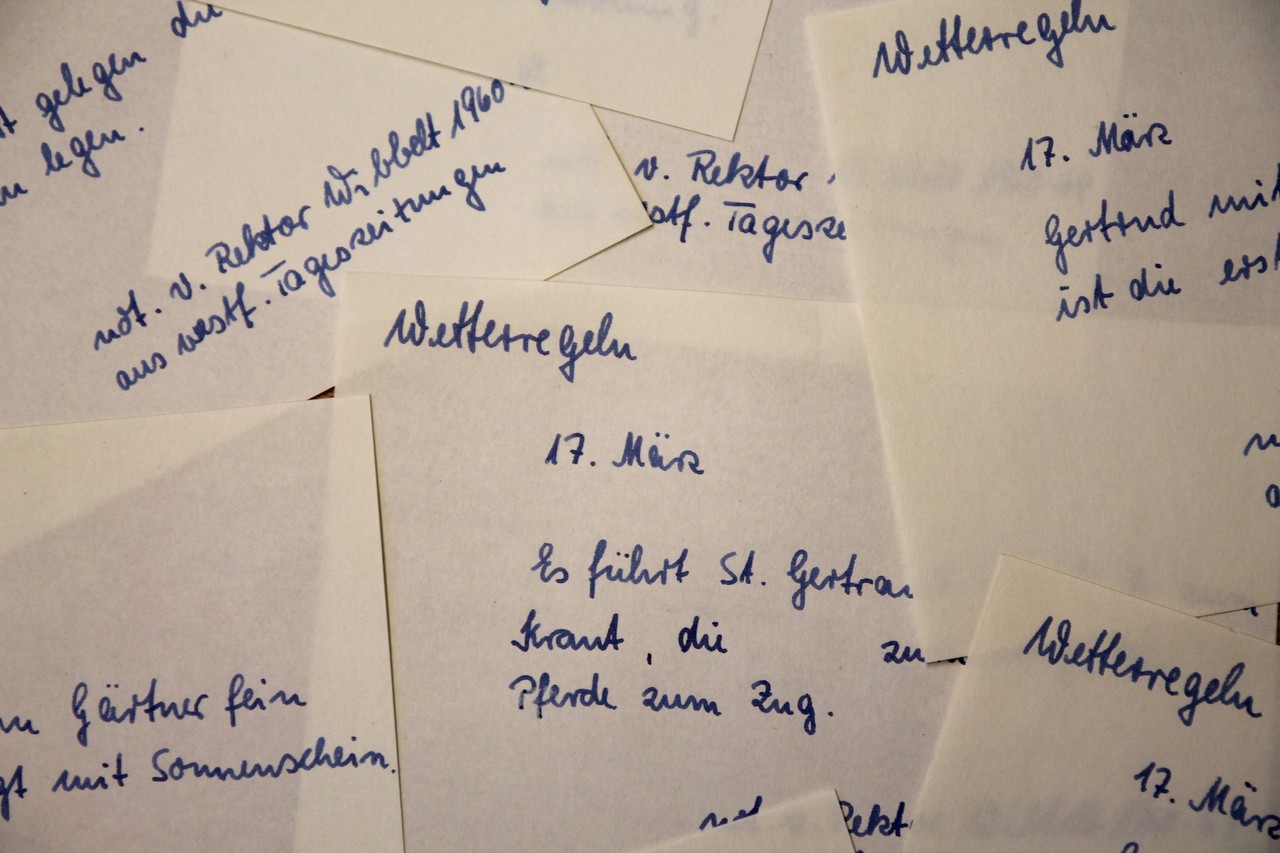 du
gelegen
legen.
not. v. Rektor Wibbelt 1960
aus westf. Tageszeitungen
v. Rektor
stf. Tagesze
Wetterregeln
17. März
Gertrud mit
ist die erst
Wetterregeln
17. März
Es führt St. Gertrau
Kraut, die zu
Pferde zum Zug.
Gärtner fein
gt mit Sonnenschein.
Rekt
Wetterregeln
17. März